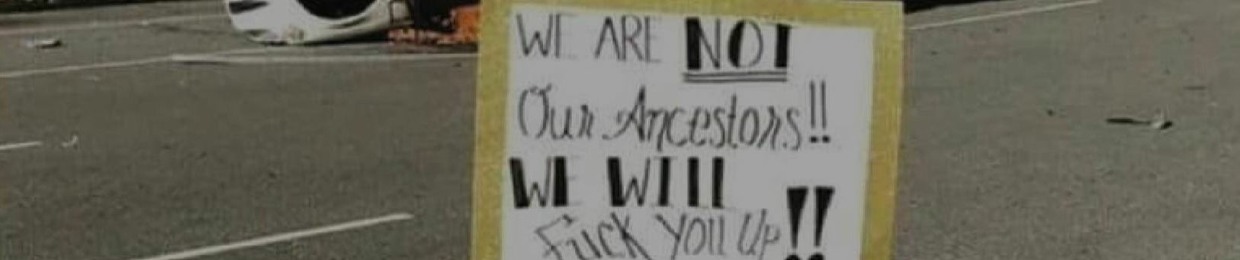 WE ARE NOT
Our Ancestors!!
WE WILL
Fuck You Up!!